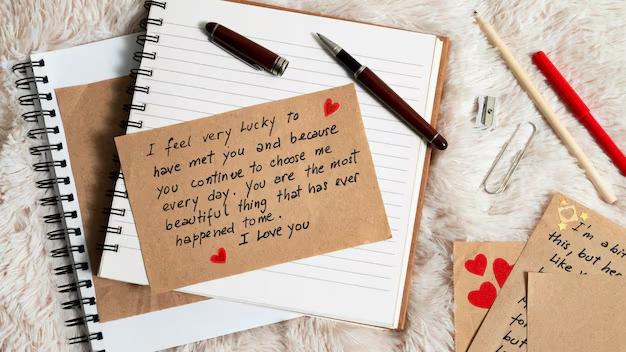 I feel very Lucky to
have met you and because
you continue to choose me
every day. You are the most
beautiful thing that has ever
happened to me.
I Love you
I'm a bit
this, but her
Like
for
but